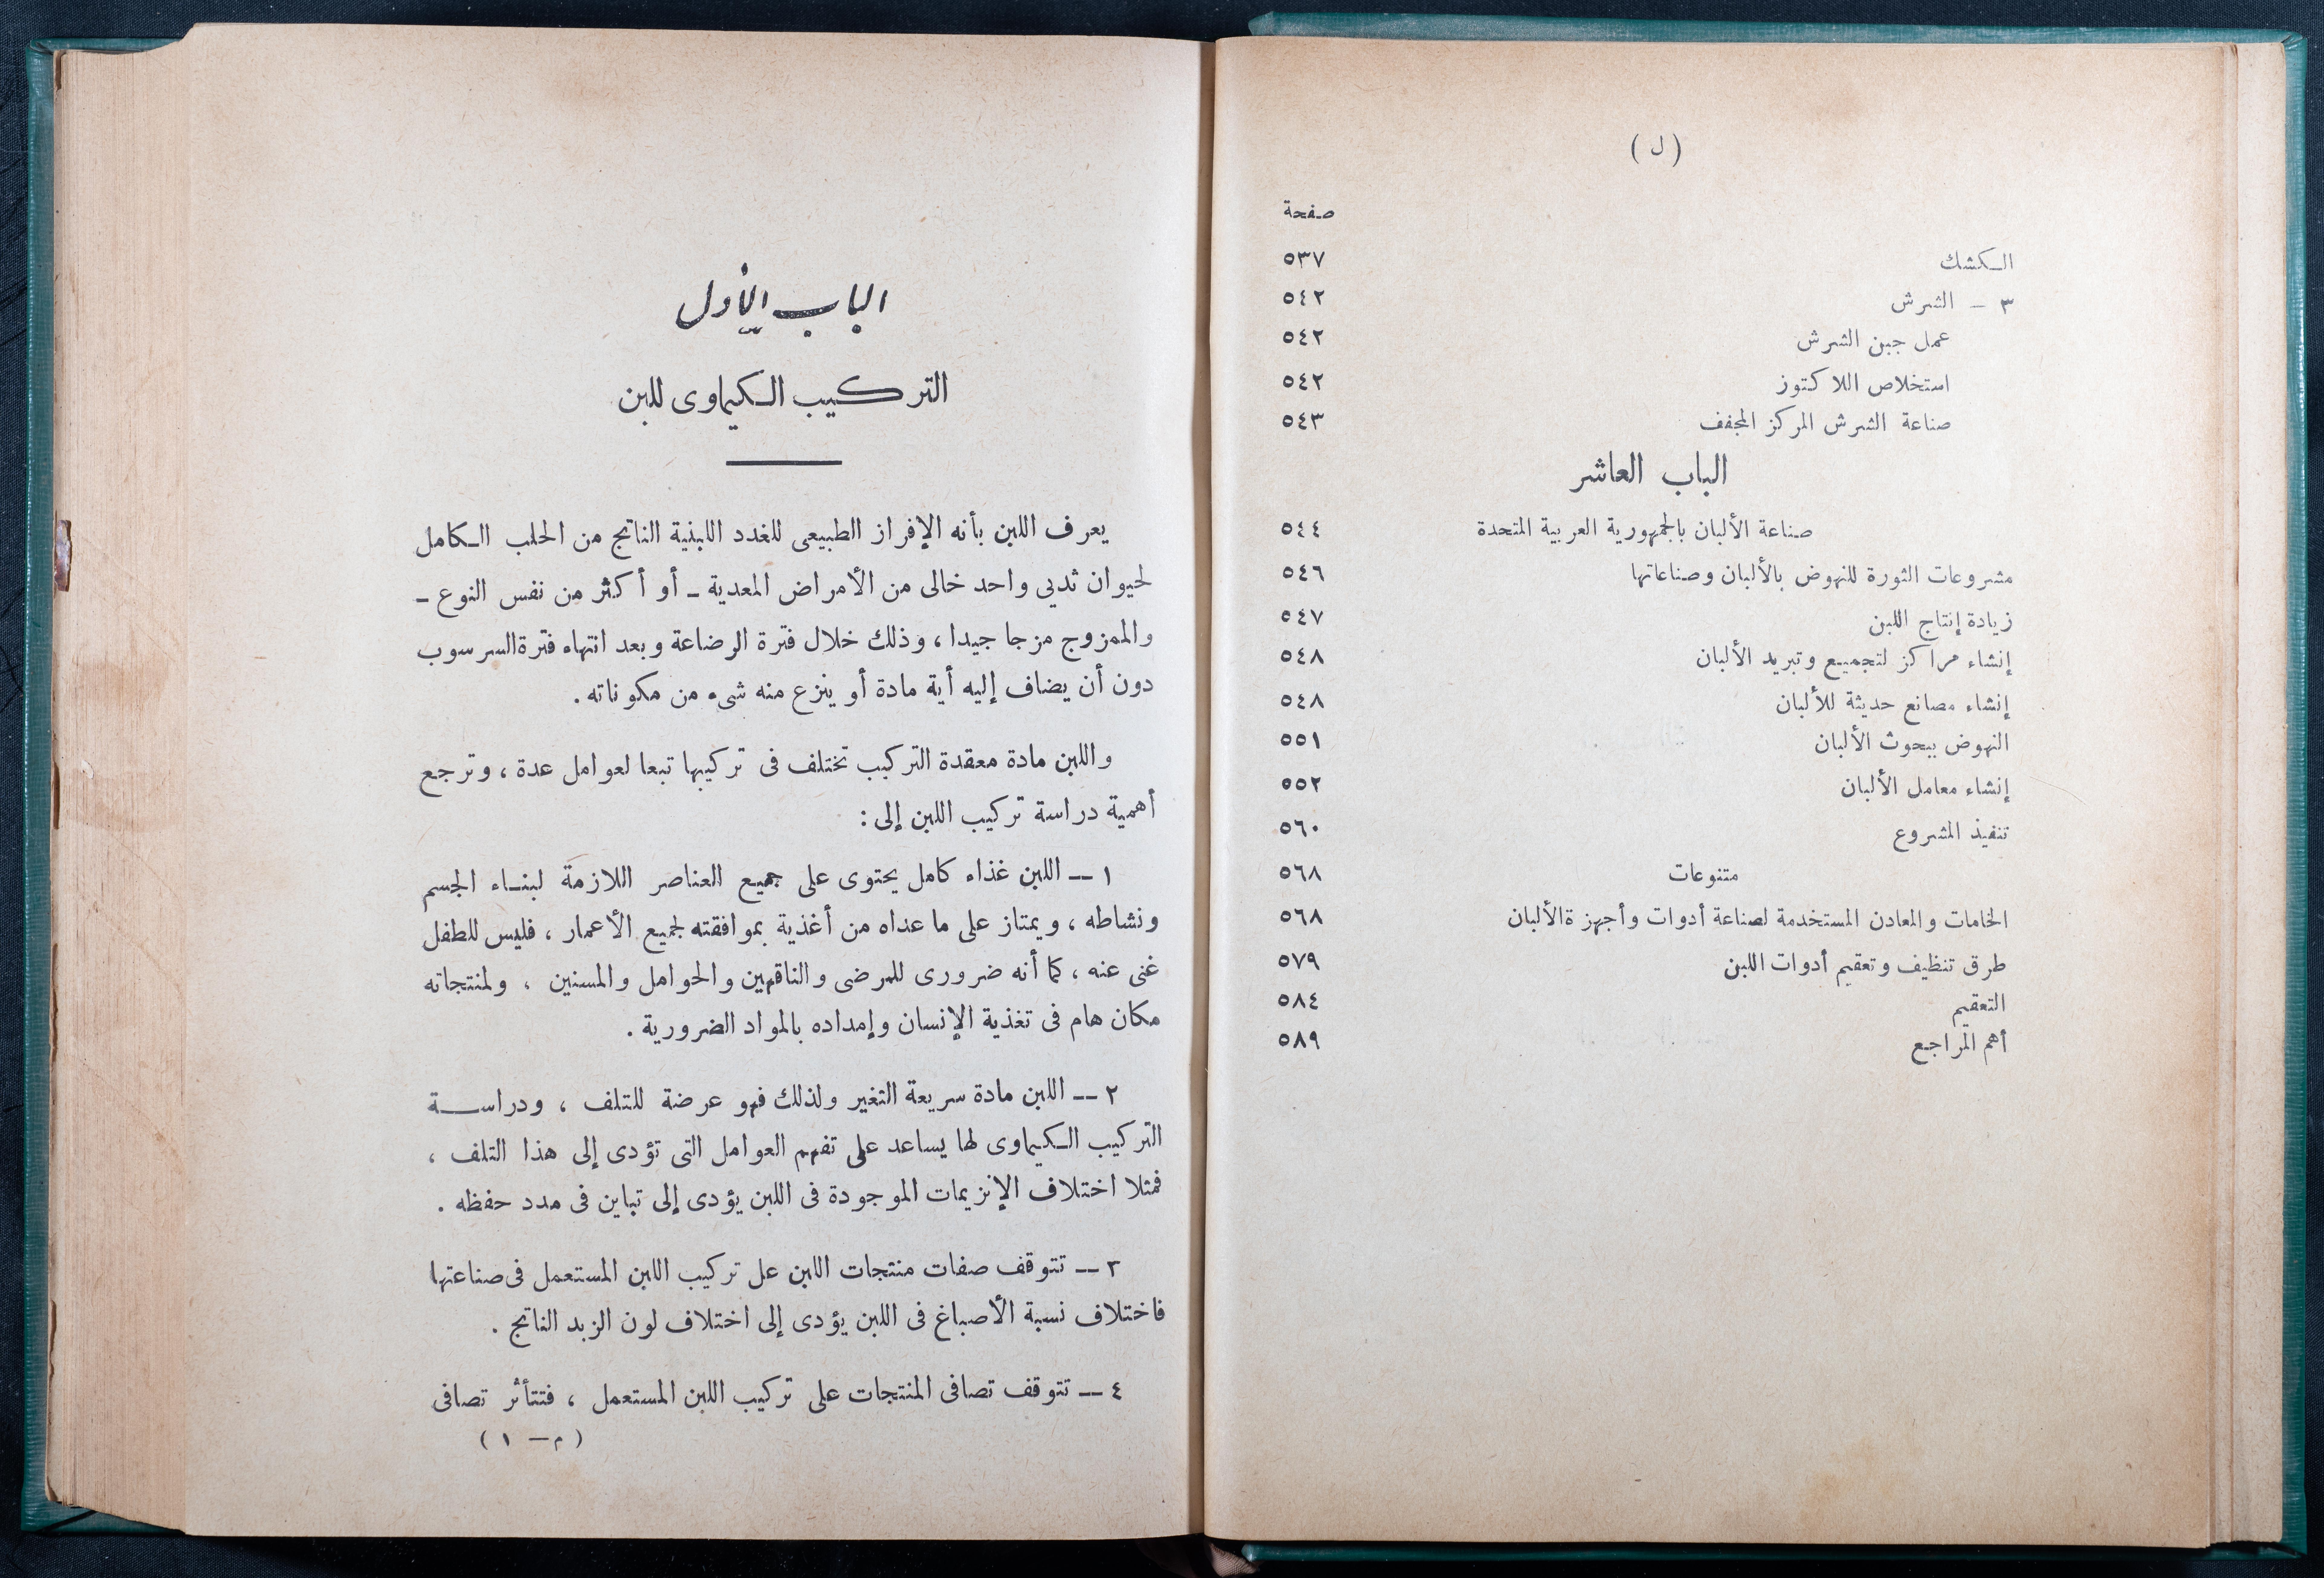 ( ل )
صفحة
الكشك ٥٣٧
٣ – الشرش ٥٤٢
عمل جبن الشرش ٥٤٢
استخلاص اللاكتوز ٥٤٢
صناعة الشرش المركز المجفف ٥٤٣
الباب العاشر
صناعة الألبان بالجمهورية العربية المتحدة ٥٤٤
مشروعات الثورة للنهوض بالألبان وصناعاتها ٥٤٦
زيادة إنتاج اللبن ٥٤٧
إنشاء مراكز لتجميع وتبريد الألبان ٥٤٨
إنشاء مصانع حديثة للألبان ٥٤٨
النهوض ببحوث الألبان ٥٥١
إنشاء معامل الألبان ٥٥٢
تنفيذ المشروع ٥٦٠
متنوعات ٥٦٨
الخامات والمعادن المستخدمة لصناعة أدوات وأجهزة الألبان ٥٦٨
طرق تنظيف وتعقيم أدوات اللبن ٥٧٩
التعقيم ٥٨٤
أهم المراجع ٥٨٩
الباب الأول
التركيب الكيماوى للبن
يعرف اللبن بأنه الإفراز الطبيعى للغدد اللبنية الناتج من الحلب الكامل
لحيوان ثديي واحد خالى من الأمراض المعدية – أو أكثر من نفس النوع –
والممزوج مزجا جيدا ، وذلك خلال فترة الرضاعة وبعد انتهاء فترة السرسوب
دون أن يضاف إليه أية مادة أو ينزع منه شىء من مكوناته .
واللبن مادة معقدة التركيب تختلف فى تركيبها تبعا لعوامل عدة ، وترجع
أهمية دراسة تركيب اللبن إلى :
١ — اللبن غذاء كامل يحتوى على جميع العناصر اللازمة لبناء الجسم
ونشاطه ، ويمتاز على ما عداه من أغذية بموافقته لجميع الأعمار ، فليس للطفل
غنى عنه ، كما أنه ضرورى للمرضى والناقهين والحوامل والمسنين ، ولمنتجاته
مكان هام فى تغذية الإنسان وإمداده بالمواد الضرورية .
٢ — اللبن مادة سريعة التغير ولذلك فهو عرضة للتلف ، ودراسة
التركيب الكيماوى لها يساعد على تفهم العوامل التى تؤدى إلى هذا التلف ،
فمثلا اختلاف الإنزيمات الموجودة فى اللبن يؤدى إلى تباين فى مدد حفظه .
٣ — تتوقف صفات منتجات اللبن عل تركيب اللبن المستعمل فى صناعتها
فاختلاف نسبة الأصباغ فى اللبن يؤدى إلى اختلاف لون الزبد الناتج .
٤ — تتوقف تصافى المنتجات على تركيب اللبن المستعمل ، فتتأثر تصافى
( م — ١ )